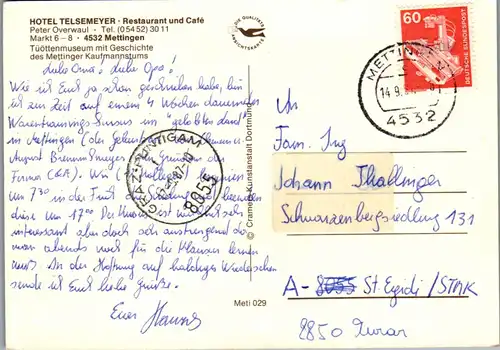 HOTEL TELSEMEYER · Restaurant und Café
Peter Overwaul · Tel. (0 54 52) 30 11
Markt 6–8 · 4532 Mettingen
Tüöttenmuseum mit Geschichte
des Mettinger Kaufmannstums
DIE QUALITÄTS
ANSICHTSKARTE
60
DEUTSCHE BUNDESPOST
METTINGEN
14.9.
4532
Liebe Oma! Liebe Opa!
Wie ich Euch ja schon geschrieben habe, bin
ich zur Zeit auf einem 4 Wochen dauernden
Warentrainings Kursus im "gelobten Land"
in Mettingen (der Geburtsort von Clemens u.
August Brenninkmeyer den Gründern der
Firma C&A). Wir
7 30 in der Früh
diese um 17 00 Der Kurs ist wirklich sehr
interessant aber doch sehr anstrengend da
man abends noch für die Klausur lernen
muß. In der Hoffnung auf baldiges Wiedersehen
sende ich Euch liebe Grüße.
Euer Hannes
GRAZ-PUNTIGAM
8055
© Cramers Kunstanstalt Dortmund
Meti 029
An
Fam. Ing
Johann Thallinger
Schwarzenbergsiedlung 131
A - 8055 St. Egidi / STMK
8850 Murau